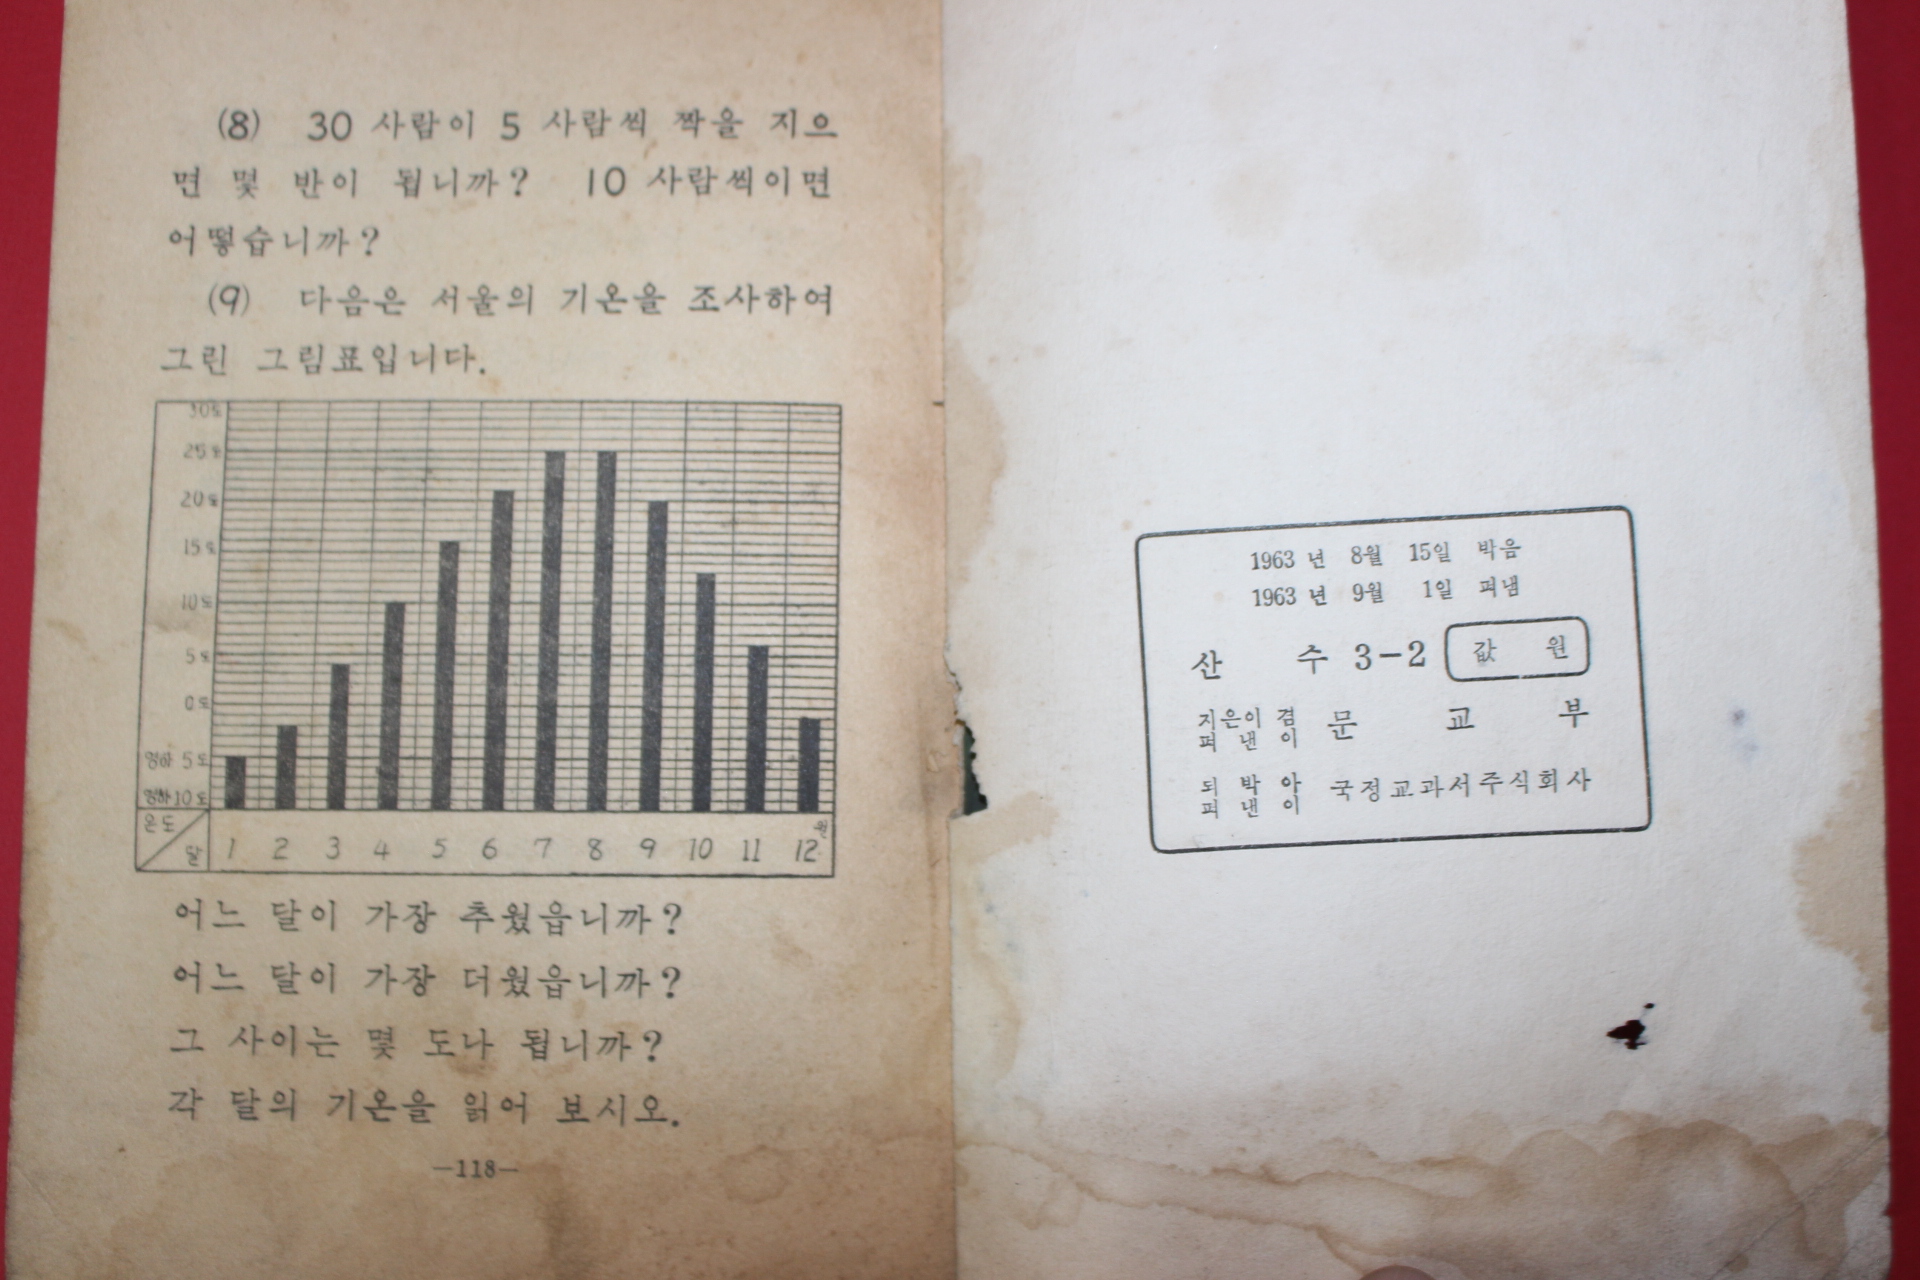 (8) 30 사람이 5 사람씩 짝을 지으
면 몇 반이 됩니까? 10 사람씩이면
어떻습니까?
(9) 다음은 서울의 기온을 조사하여
그린 그림표입니다.
30도
25도
20도
15도
10도
5도
0도
영하 5도
영하 10도
온도
달
1 2 3 4 5 6 7 8 9 10 11 12월
어느 달이 가장 추웠읍니까?
어느 달이 가장 더웠읍니까?
그 사이는 몇 도나 됩니까?
각 달의 기온을 읽어 보시오.
—118—
1963년 8월 15일 박음
1963년 9월 1일 펴냄
산 수 3-2 값 원
지은이 겸
펴 낸 이
문 교 부
되 박 아
펴 낸 이
국정교과서주식회사